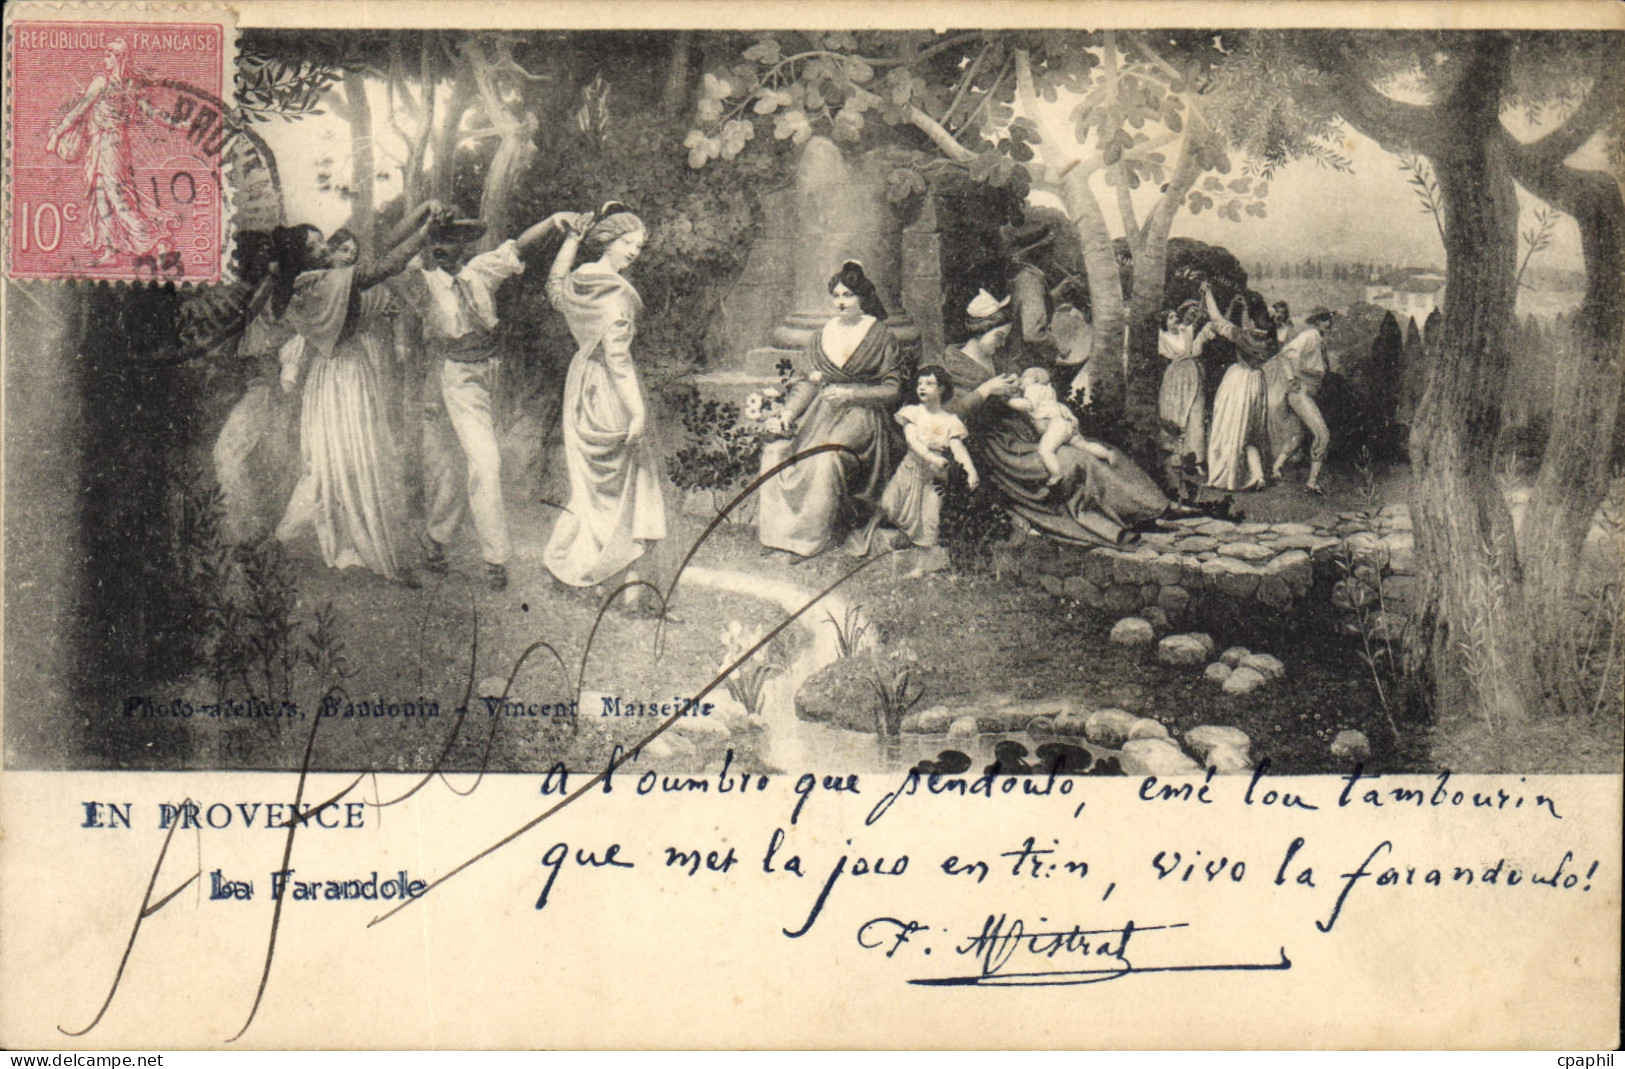 REPUBLIQUE FRANÇAISE
10c
POSTES
10
05
Photo-ateliers, Baudouin - Vincent Marseille
EN PROVENCE
La Farandole
A l'oumbro que pendoulo, emé lou tambourin
que met la joio en trin, vivo la farandoulo!
F. Mistral
cpaphil